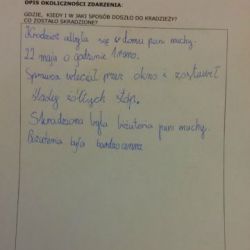 OPIS OKOLICZNOŚCI ZDARZENIA:
GDZIE, KIEDY I W JAKI SPOSÓB DOSZŁO DO KRADZIEŻY?
CO ZOSTAŁO SKRADZIONE?
Kradzież odbyła się w domu pani muchy.
22 maja o godzinie 1 rano.
Sprawca wleciał przez okno i zostawił
ślady żółtych stóp.
Skradziona była biżuteria pani muchy.
Biżuteria była bardzo cenna